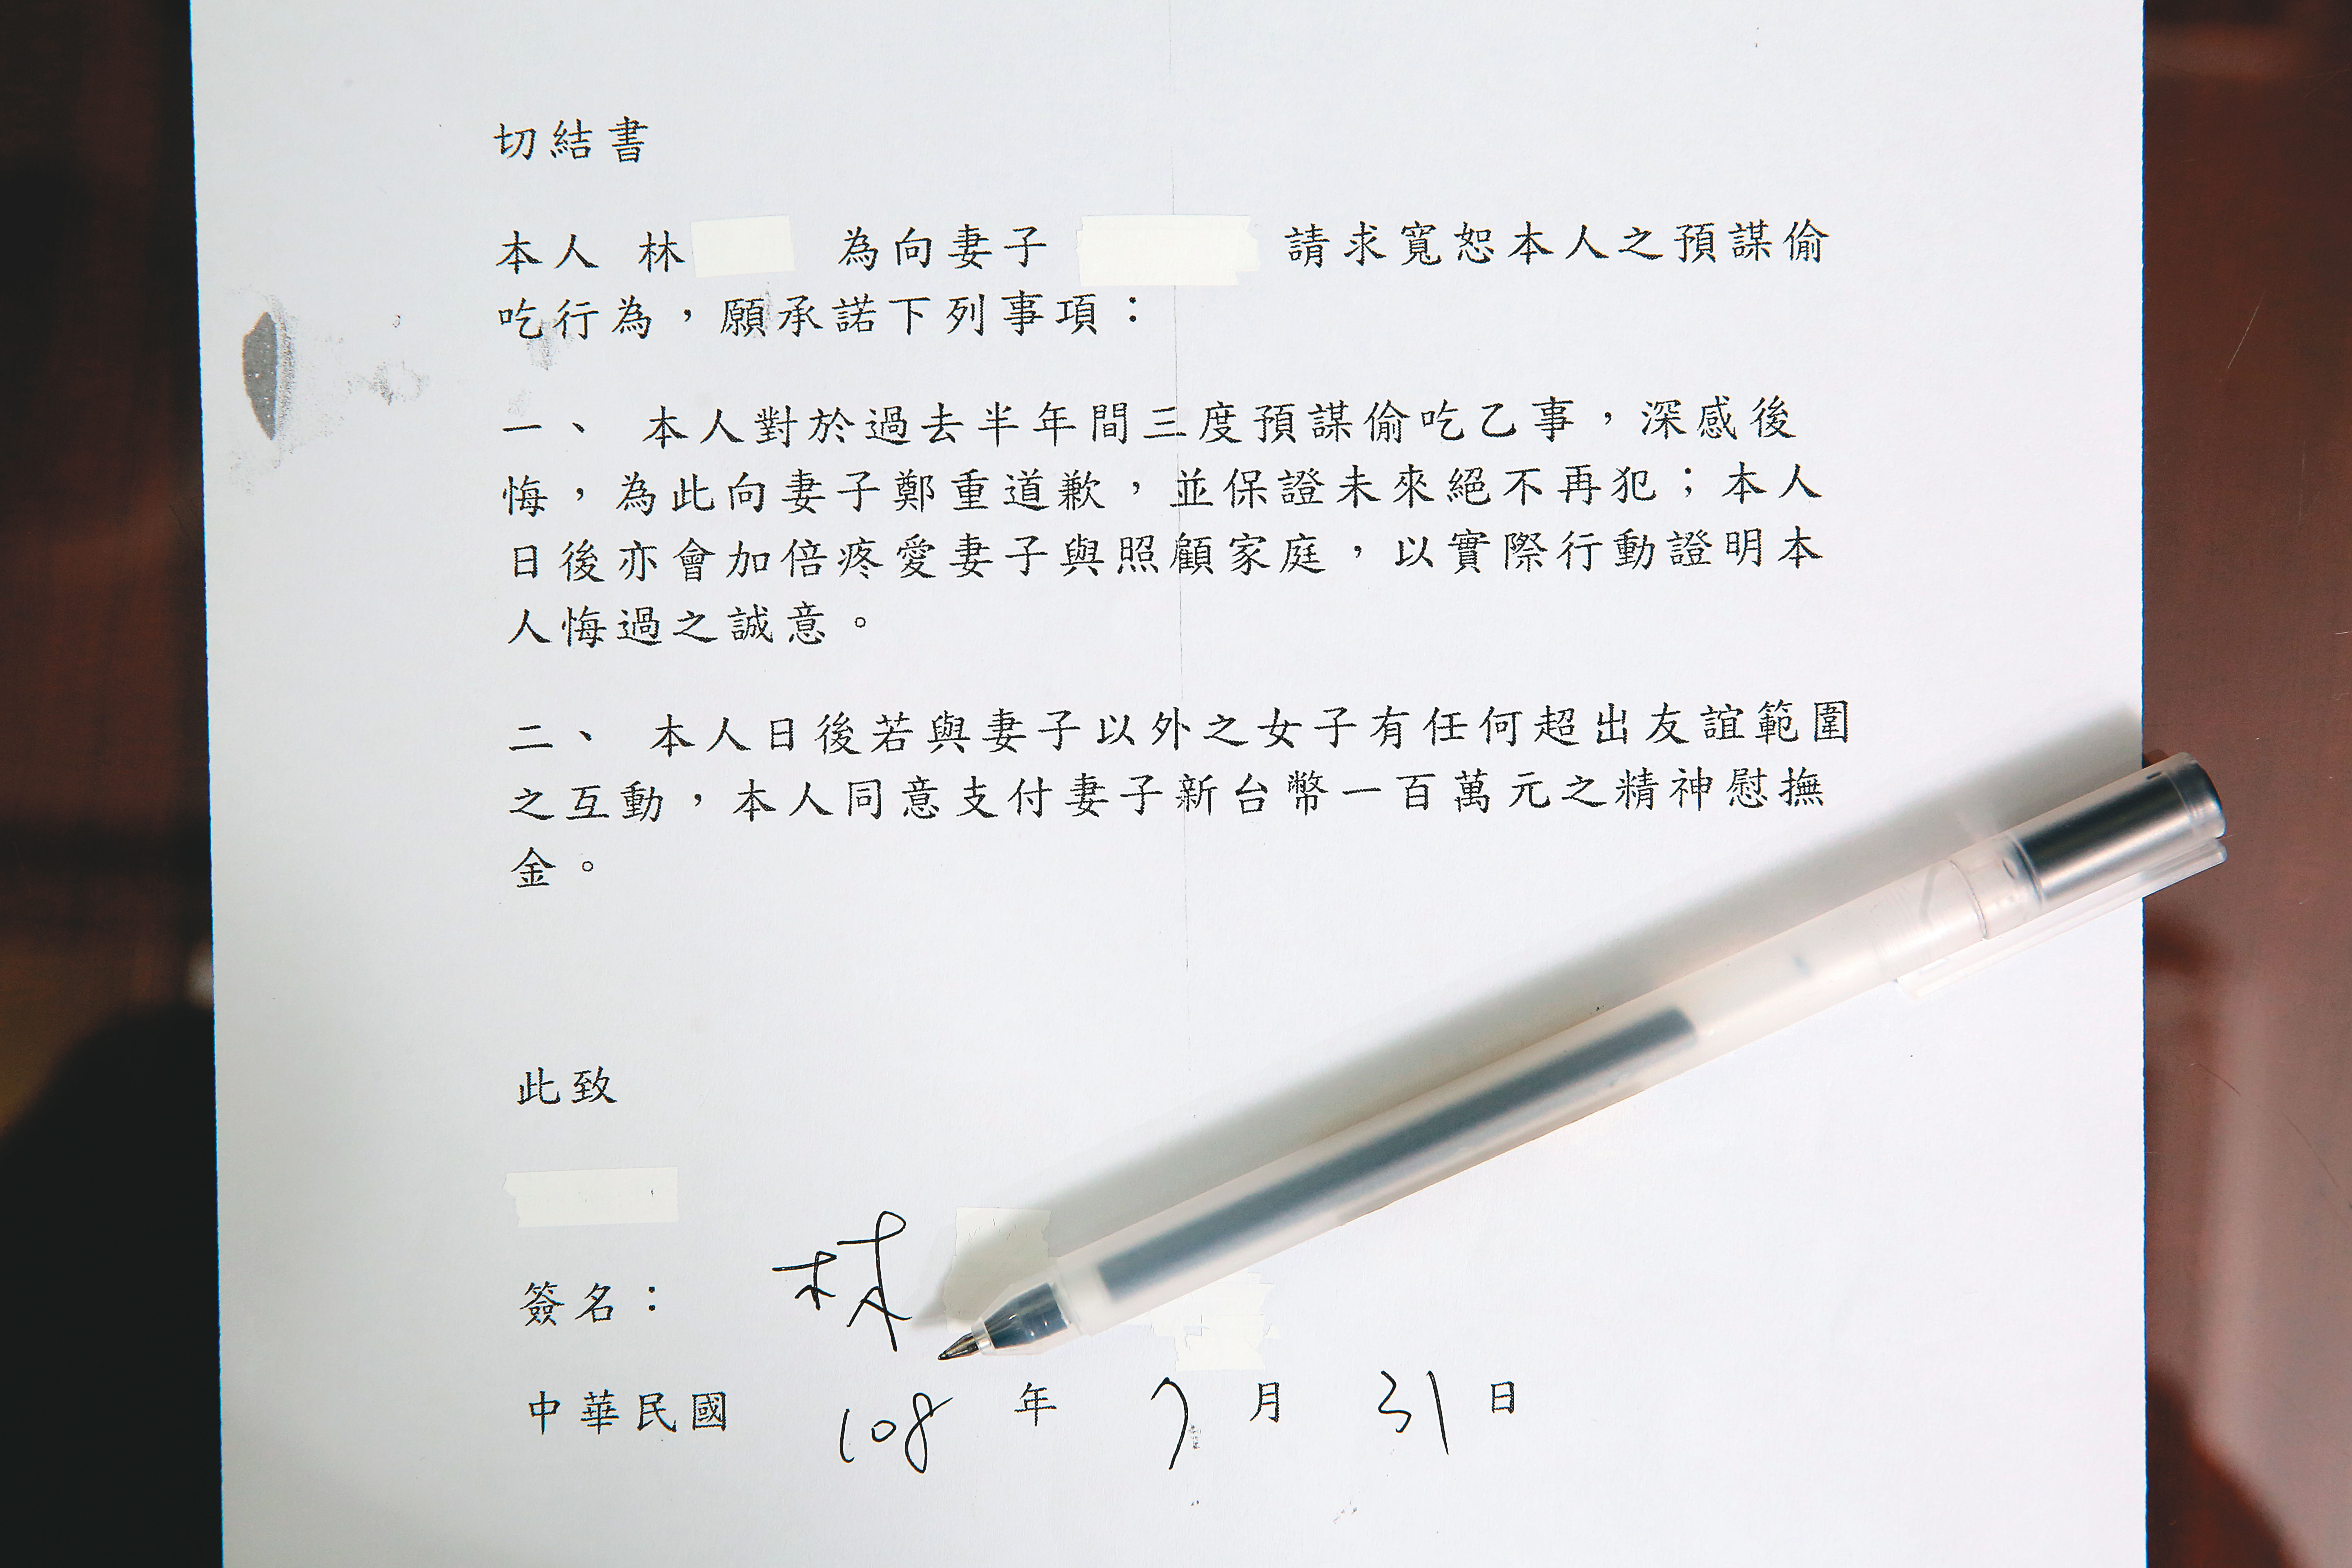 切結書
本人 林 為向妻子 請求寬恕本人之預謀偷
吃行為，願承諾下列事項：
一、 本人對於過去半年間三度預謀偷吃乙事，深感後
悔，為此向妻子鄭重道歉，並保證未來絕不再犯；本人
日後亦會加倍疼愛妻子與照顧家庭，以實際行動證明本
人悔過之誠意。
二、 本人日後若與妻子以外之女子有任何超出友誼範圍
之互動，本人同意支付妻子新台幣一百萬元之精神慰撫
金。
此致
簽名： 林
中華民國 108 年 7 月 31 日